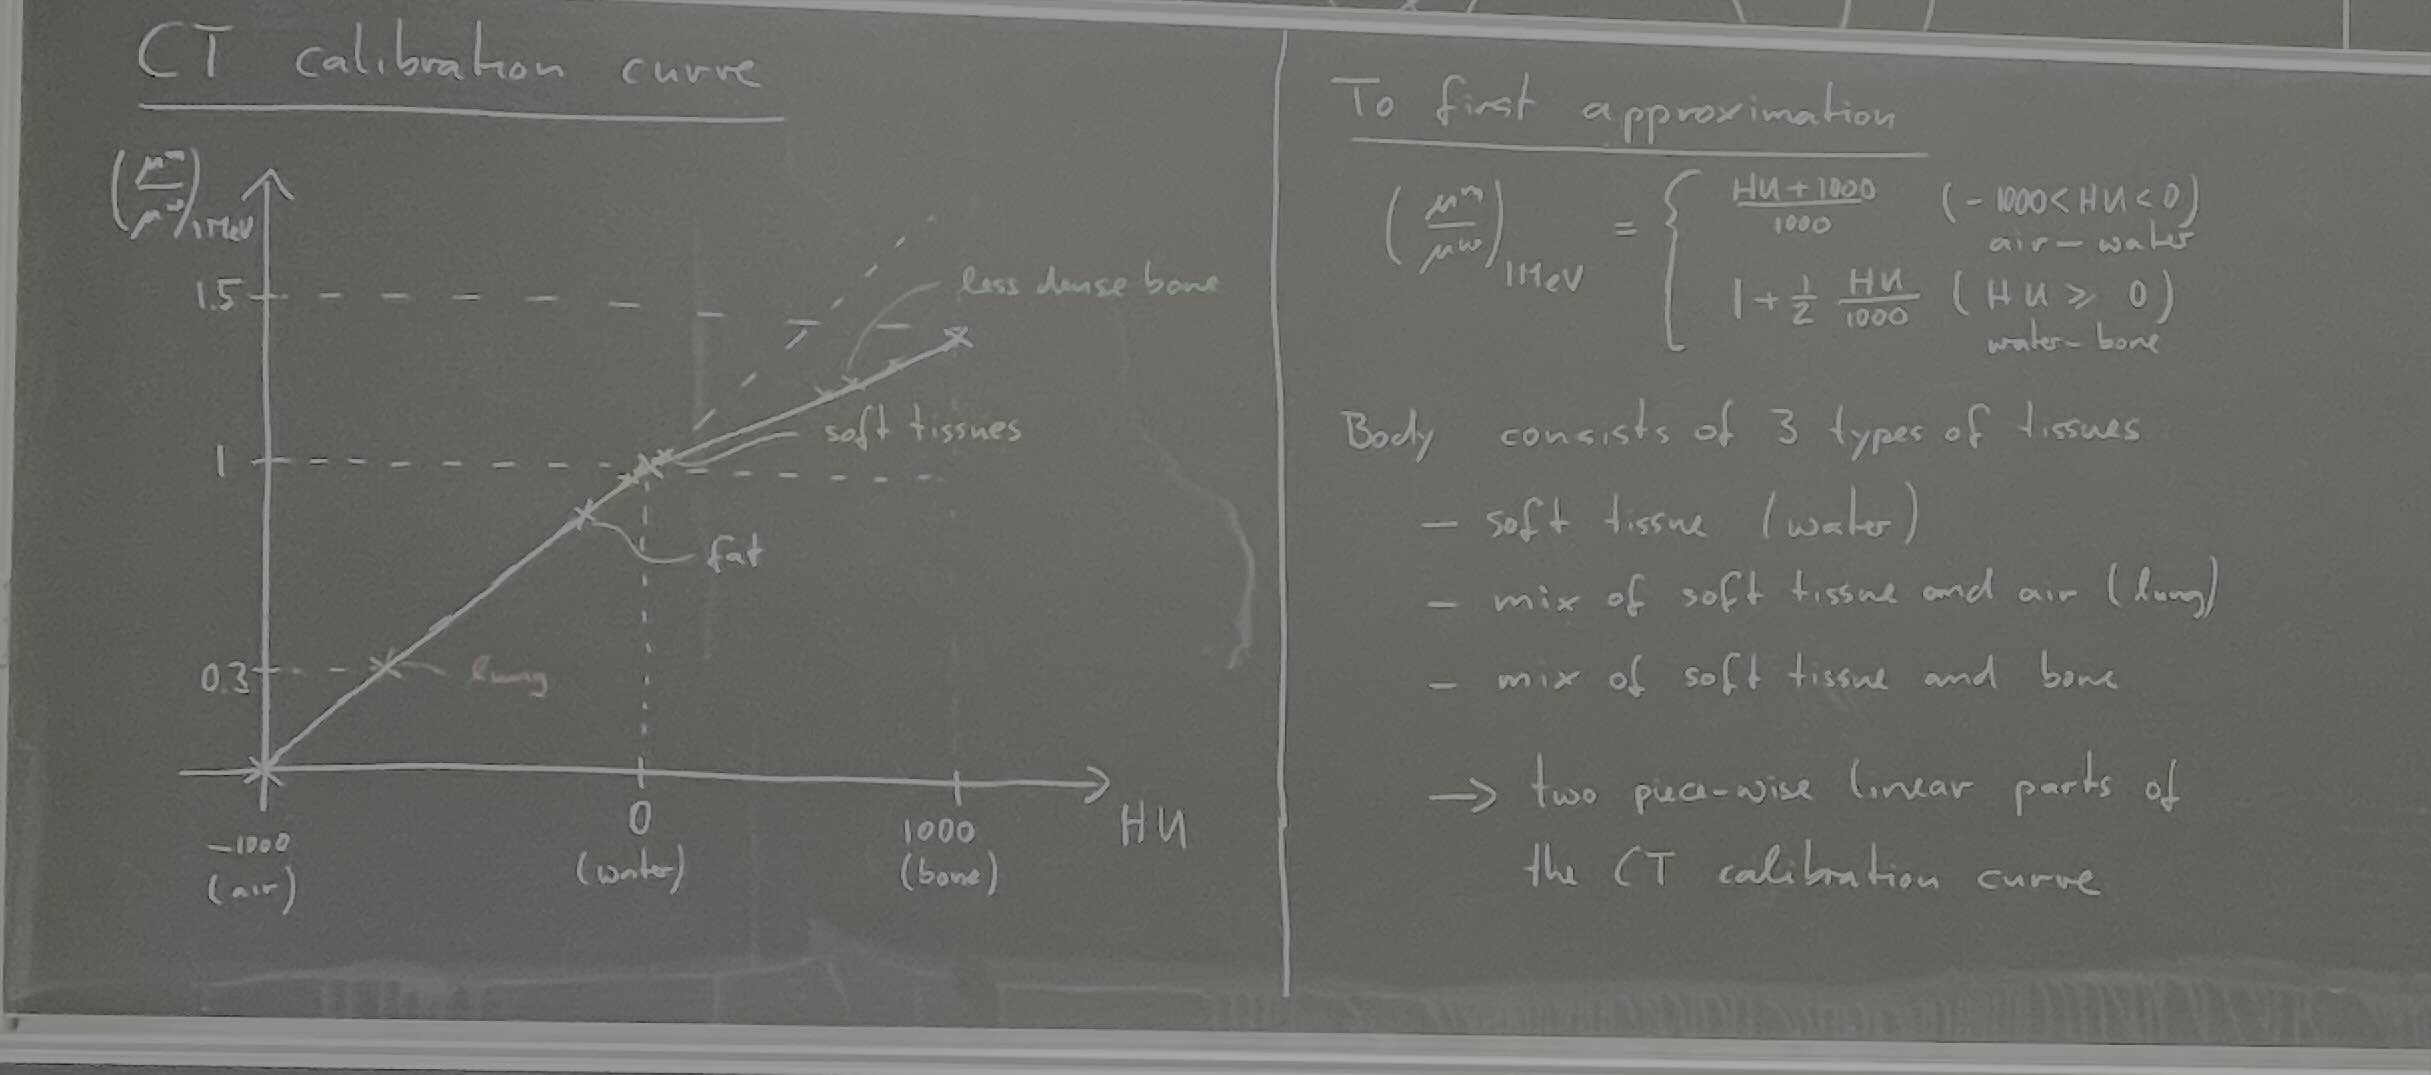 CT calibration curve
(μᵐ/μʷ)₁MeV
1.5
less dense bone
soft tissues
1
fat
0.3
lung
-1000
(air)
0
(water)
1000
(bone)
HU
To first approximation
(μᵐ/μʷ)₁MeV = { (HU+1000)/1000 (-1000<HU<0)
air-water
1+½ HU/1000 (HU ≥ 0)
water-bone
Body consists of 3 types of tissues
- soft tissue (water)
- mix of soft tissue and air (lung)
- mix of soft tissue and bone
→ two piece-wise linear parts of
the CT calibration curve